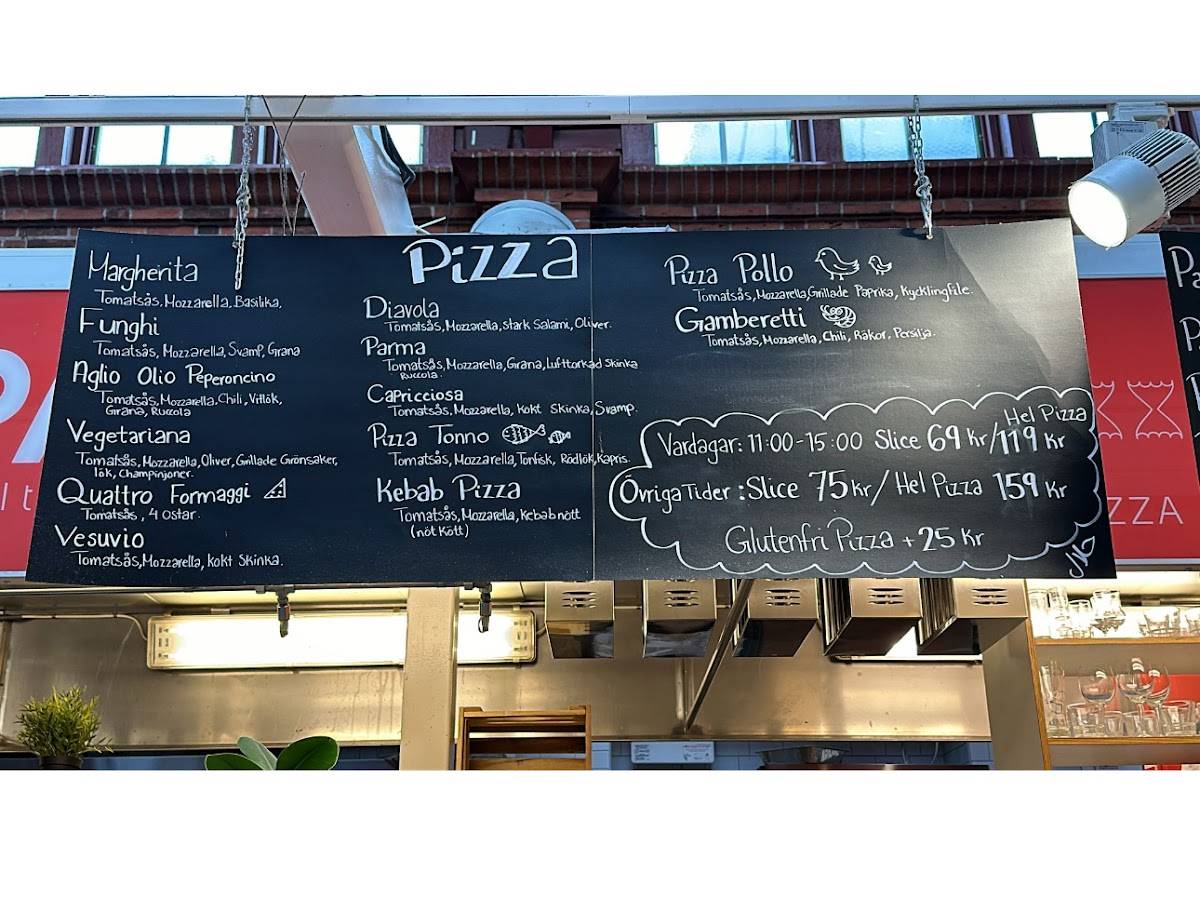 Pizza
Margherita
Tomatsås, Mozzarella, Basilika.
Funghi
Tomatsås, Mozzarella, Svamp, Grana
Aglio Olio Peperoncino
Tomatsås, Mozzarella, Chili, Vitlök,
Grana, Ruccola
Vegetariana
Tomatsås, Mozzarella, Oliver, Grillade Grönsaker,
lök, Champinjoner.
Quattro Formaggi
Tomatsås, 4 Ostar.
Vesuvio
Tomatsås, Mozzarella, kokt Skinka.
Diavola
Tomatsås, Mozzarella, stark Salami, Oliver.
Parma
Tomatsås, Mozzarella, Grana, Lufttorkad Skinka
Ruccola.
Capricciosa
Tomatsås, Mozzarella, kokt Skinka, Svamp.
Pizza Tonno
Tomatsås, Mozzarella, Tonfisk, Rödlök, Kapris.
Kebab Pizza
Tomatsås, Mozzarella, Kebab nött
(nöt Kött)
Pizza Pollo
Tomatsås, Mozzarella, Grillade Paprika, Kycklingfile.
Gamberetti
Tomatsås, Mozzarella, Chili, Räkor, Persilja.
Hel Pizza
Vardagar: 11:00-15:00 Slice 69 Kr/119 Kr
Övriga Tider: Slice 75 Kr/ Hel Pizza 159 Kr
Glutenfri Pizza + 25 Kr
حلال
PA
lt
ZZA
Pa